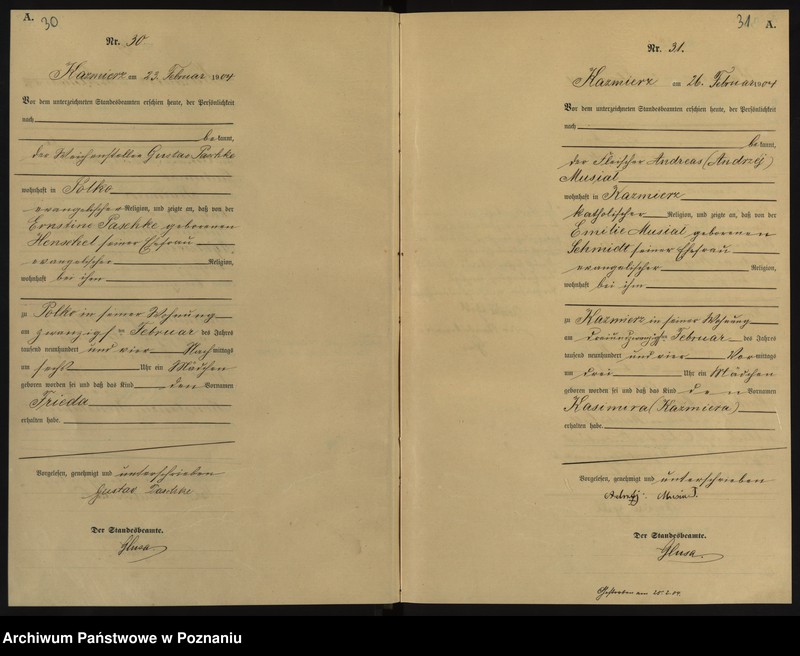 A. 30
Nr. 30
Kazmierz am 23. Februar 1904
Vor dem unterzeichneten Standesbeamten erschien heute, der Persönlichkeit
nach
bekannt,
der Weichensteller Gustav Paschke
wohnhaft in Polko
evangelischer Religion, und zeigte an, daß von der
Ernstine Paschke geborenen
Henschel seiner Ehefrau
evangelischer Religion,
wohnhaft bei ihm
zu Polko in seiner Wohnung
am zwanzigsten Februar des Jahres
tausend neunhundert und vier Nachmittags
um sechs Uhr ein Mädchen
geboren worden sei und daß das Kind den Vornamen
Frieda
erhalten habe.
Vorgelesen, genehmigt und unterschrieben
Gustav Paschke
Der Standesbeamte.
Glusa
31 A.
Nr. 31.
Kazmierz am 26. Februar 1904
Vor dem unterzeichneten Standesbeamten erschien heute, der Persönlichkeit
nach
bekannt,
der Fleischer Andreas (Andrzej)
Musial
wohnhaft in Kazmierz
katholischer Religion, und zeigte an, daß von der
Emilie Musial geborenen
Schmidt seiner Ehefrau
evangelischer Religion,
wohnhaft bei ihm
zu Kazmierz in seiner Wohnung
am dreiundzwanzigsten Februar des Jahres
tausend neunhundert und vier Vormittags
um drei Uhr ein Mädchen
geboren worden sei und daß das Kind den Vornamen
Kasimira (Kazmiera)
erhalten habe.
Vorgelesen, genehmigt und unterschrieben
Musiał.
Der Standesbeamte.
Glusa
Gestorben am
Archiwum Państwowe w Poznaniu